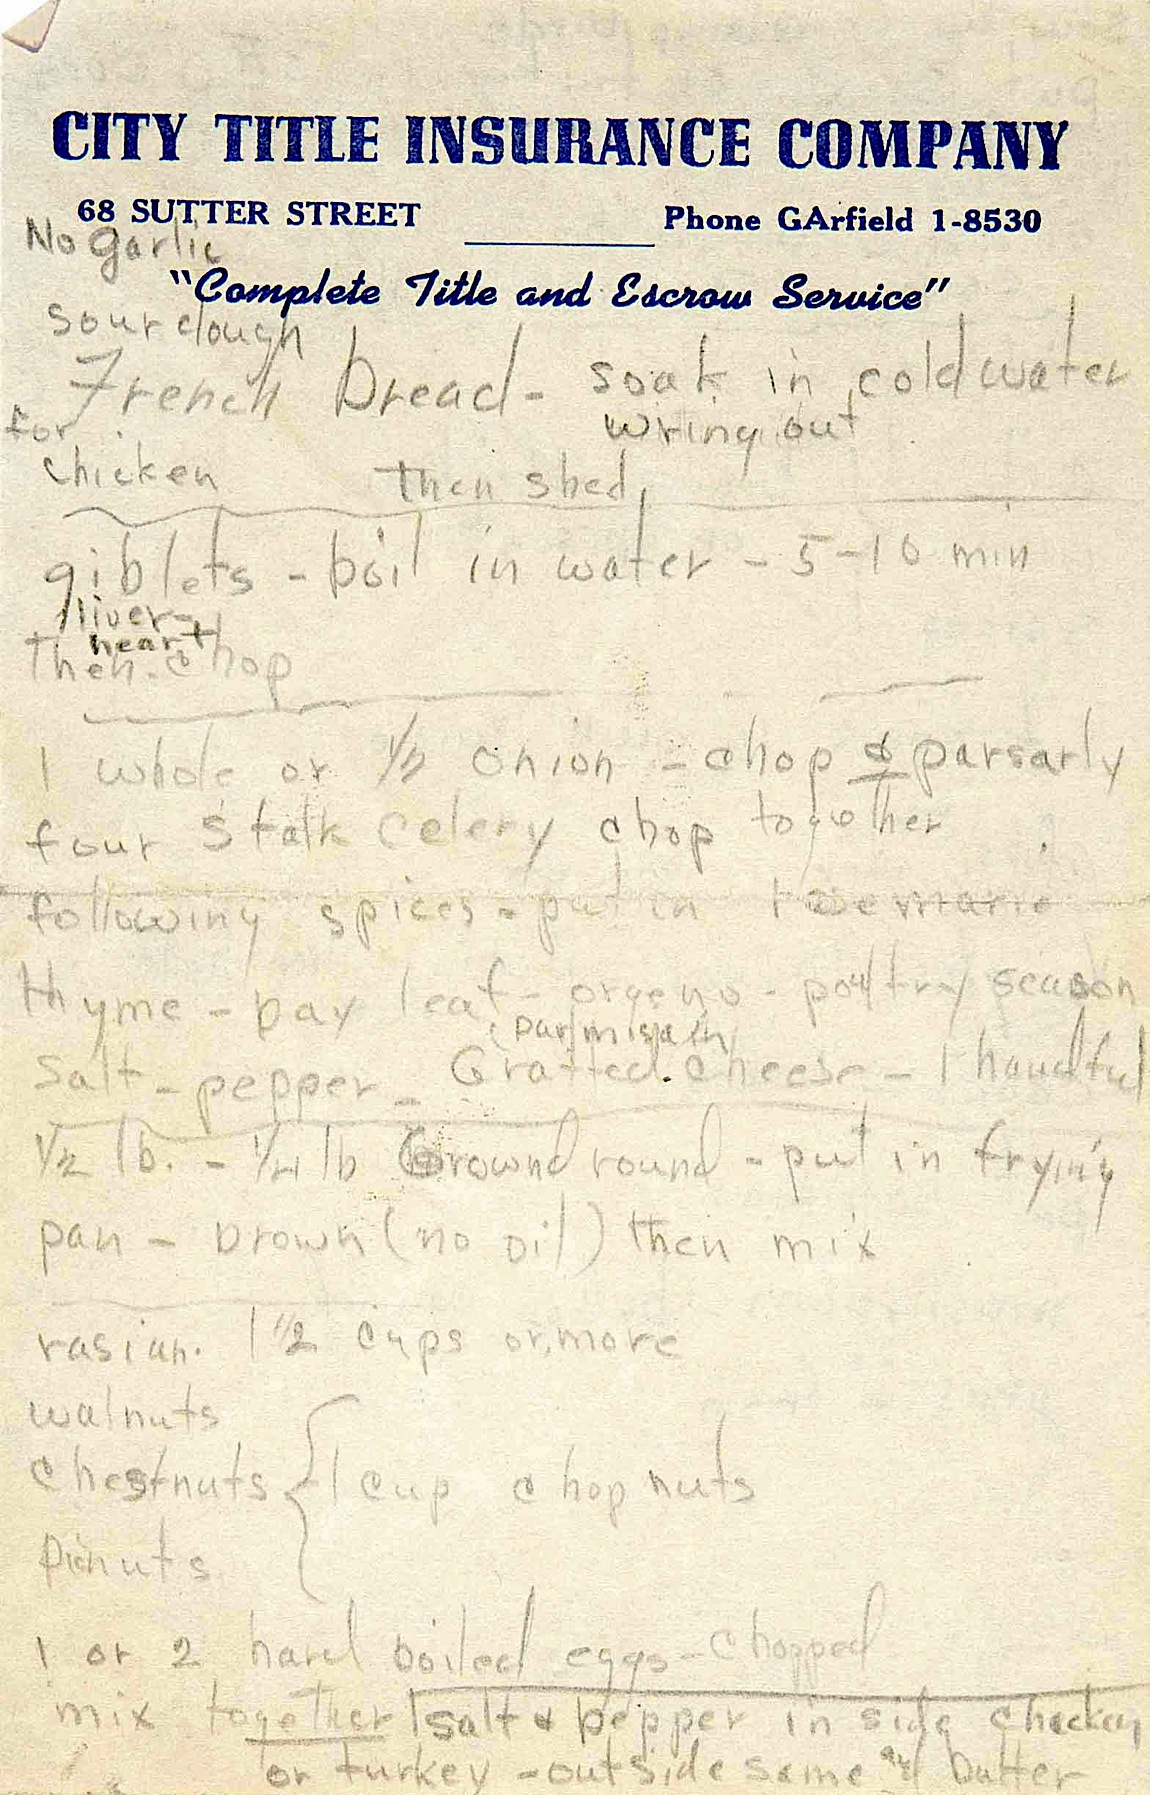 CITY TITLE INSURANCE COMPANY
68 SUTTER STREET Phone GArfield 1-8530
No garlic
"Complete Title and Escrow Service"
sour dough
French bread - soak in cold water
for wring out
chicken then shed
giblets - boil in water - 5-10 min
liver -
heart
then - chop
1 whole or 1/2 onion - chop & parsarly
four stalk celery chop together
following spices - put in rosemarie
thyme - bay leaf - orgeno - poultry season
(parmisain)
salt - pepper - Gratted cheese - 1 handful
1/2 lb. - 1/4 lb Ground round - put in frying
pan - brown (no oil) then mix
rasian. 1 1/2 cups or more
walnuts
chestnuts { 1 cup chop nuts
pinuts
1 or 2 hard boiled eggs - chopped
mix together salt & pepper in side chicken
or turkey - outside same and butter